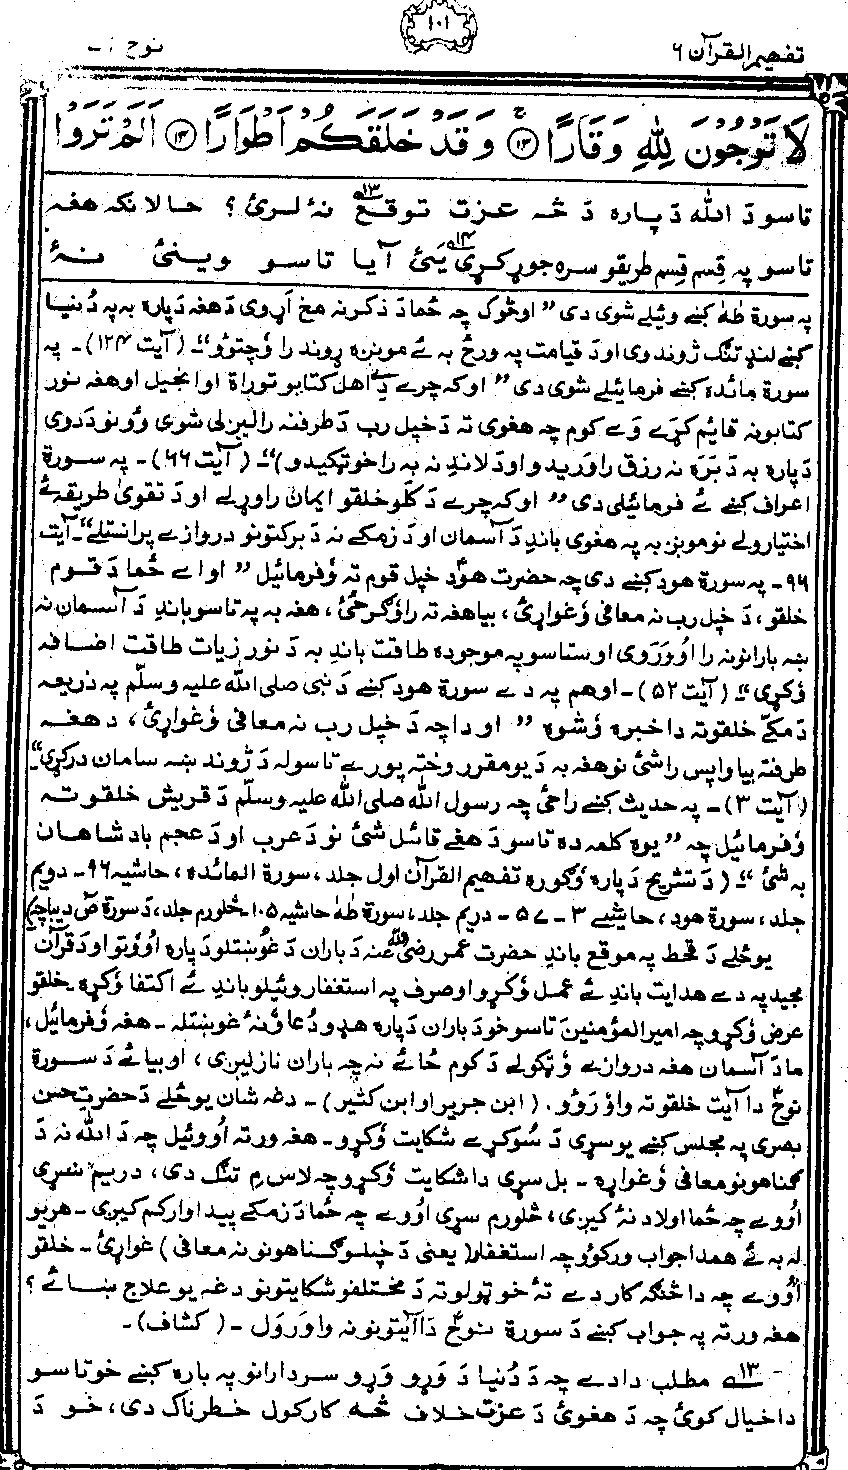 تفهیم القرآن ۶
۱۰۱
نوح ۷۱
لَا تَرْجُوْنَ لِلّٰهِ وَقَارًا ۝۱۳ وَقَدْ خَلَقَكُمْ اَطْوَارًا ۝۱۴ اَلَمْ تَرَوْا
تاسو دَ الله دَپاره دَ څه عزت توقع ۱۳ نهٔ لرئ؟ حالانکه هغه
تاسو په قِسم قِسم طریقو سره جوړ کړی یئ ۱۴ آیا تاسو وینئ نهٔ
په سورة طٰهٰ کښے ویئلے شوی دی ”اوڅوک چه ځما دَ ذکر نه مخ اَړوی دَ هغه دَپاره به په دُنیا
کښے لنډ تنګ ژوند وی او دَ قیامت په ورځ به ئے مونږه ړوند را وُچتوؤ“ـ (آیت ۱۲۴)ـ په
سورة مائده کښے فرمائیلے شوی دی ”اوکه چرے دے اهل کتابو توراة او انجیل او هغه نور
کتابونه قایٔم کړے وے کوم چه هغوی ته دَ خپل رب دَ طرفنه رالیږلی شوی وُو نو دَ دوی
دَپاره به دَ بَره نه رزق راوریدو او دَ لاندِ نه به راخوټکیدو)“ـ (آیت ۶۶)ـ په سورة
اعراف کښے ئے فرمائیلی دی ”اوکه چرے دَ کلو خلقو ایمان راوړلے او دَ تقویٰ طریقه ئے
اختیارولے نو مونږ به په هغوی باندِ دَ آسمان او دَ زمکے نه دَ برکتونو دروازے پرانستلے“ـ آیت
۹۶ـ په سورة هود کښے دی چه حضرت هودؑ خپل قوم ته وُفرمائیل ”او اے ځما دَ قوم
خلقو، دَ خپل رب نه معافی وُغواړئ، بیا هغه ته راوُګرځئ، هغه به په تاسو باندِ دَ آسمان نه
ښه بارانونه را اُووَروی او ستاسو په موجوده طاقت باندِ به دَ نور زیات طاقت اضافه
وُکړی“ـ (آیت ۵۲)ـ او هم په دے سورة هود کښے دَ نبی صلی الله علیه وسلّم په ذریعه
دَ مکّے خلقو ته دا خبره وُشوه ”او دا چه دَ خپل رب نه معافی وُغواړئ، دهغه
طرفته بیا واپس راشئ نو هغه به دَ یو مقرر وخته پورے تاسو له دَ ژوند ښه سامان درکړی“ـ
(آیت ۳)ـ په حدیث کښے راځی چه رسول الله صلی الله علیه وسلّم دَ قریش خلقو ته
وُفرمائیل چه ”یوه کلمه ده تاسو دَ هغے قائل شئ نو دَ عرب او دَ عجم بادشاهان
به شئ“ـ (دَ تشریح دَپاره وُګوره تفهیم القرآن اول جلد، سورة المائده، حاشیه ۹۶ـ دویم
جلد، سورة هود، حاشیے ۳ـ ۵۷ـ دریم جلد، سورة طٰهٰ حاشیه ۱۰۵ـ څلورم جلد، دَ سورة صٓ دیباچه)
یوځلے دَ قحط په موقع باندِ حضرت عمر رضی الله عنه دَ باران دَ غوښتلو دَپاره اُووَتو او دَ قرآن
مجید په دے هدایت باندِ ئے عمل وُکړو او صرف په استغفار وئیلو باندِ ئے اکتفا وُکړه ـ خلقو
عرض وُکړو چه امیرالمؤمنین تاسو خو دَ باران دَپاره هډو دُعا وُنهٔ غوښتله ـ هغه وُفرمائیل،
ما دَ آسمان هغه دروازے وُټکولے دَ کوم ځائے نه چه باران نازلیږی، او بیا ئے دَ سورة
نوحؑ دا آیت خلقو ته واوروؤ. (ابن جریر او ابن کثیر)ـ دغه شان یوځلے دَ حضرت حسن
بصری په مجلس کښے یو سړی دَ سُوکړے شکایت وُکړو ـ هغه ورته اُووئیل چه دَ الله نه دَ
ګناهونو معافی وُغواړه ـ بل سړی دا شکایت وُکړو چه لاس مِ تنګ دی، دریم سړی
اُووے چه ځما اولاد نهٔ کیږی، څلورم سړی اُووے چه ځما دَ زمکے پیداوار کم کیږی ـ هر یو
له به ئے همدا جواب ورکوؤ چه استغفار (یعنی دَ خپلو ګناهونو نه معافی) غواړئ ـ خلقو
اُووے چه دا څنګه کار دے تهٔ خو ټولو ته دَ مختلفو شکایتونو دغه یو علاج ښائے؟
هغه ورته په جواب کښے دَ سورة نوحؑ دا آیتونه واورَول ـ (کشاف)ـ
۱۳ مطلب دا دے چه دَ دُنیا دَ وړو وړو سردارانو په باره کښے خو تاسو
دا خیال کوئ چه دَ هغوئ دَ عزت خلاف څه کار کول خطرناک دی، خو دَ